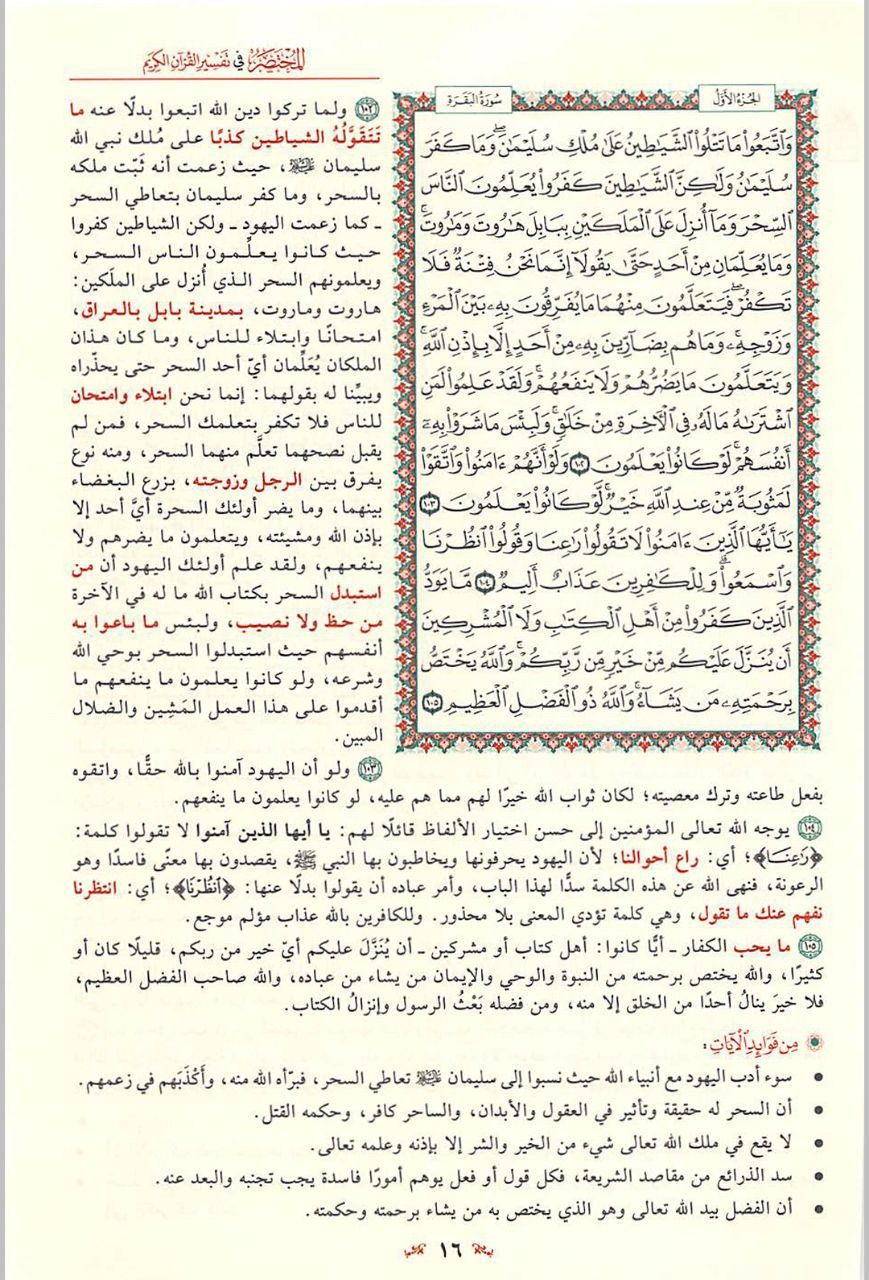 المختصر في تفسير القرآن الكريم
الجزء الأول
سورة البقرة
وَٱتَّبَعُوا۟ مَا تَتْلُوا۟ ٱلشَّيَـٰطِينُ عَلَىٰ مُلْكِ سُلَيْمَـٰنَ ۖ وَمَا كَفَرَ
سُلَيْمَـٰنُ وَلَـٰكِنَّ ٱلشَّيَـٰطِينَ كَفَرُوا۟ يُعَلِّمُونَ ٱلنَّاسَ
ٱلسِّحْرَ وَمَآ أُنزِلَ عَلَى ٱلْمَلَكَيْنِ بِبَابِلَ هَـٰرُوتَ وَمَـٰرُوتَ ۚ
وَمَا يُعَلِّمَانِ مِنْ أَحَدٍ حَتَّىٰ يَقُولَآ إِنَّمَا نَحْنُ فِتْنَةٌ فَلَا
تَكْفُرْ ۖ فَيَتَعَلَّمُونَ مِنْهُمَا مَا يُفَرِّقُونَ بِهِۦ بَيْنَ ٱلْمَرْءِ
وَزَوْجِهِۦ ۚ وَمَا هُم بِضَآرِّينَ بِهِۦ مِنْ أَحَدٍ إِلَّا بِإِذْنِ ٱللَّهِ ۚ
وَيَتَعَلَّمُونَ مَا يَضُرُّهُمْ وَلَا يَنفَعُهُمْ ۚ وَلَقَدْ عَلِمُوا۟ لَمَنِ
ٱشْتَرَىٰهُ مَا لَهُۥ فِى ٱلْـَٔاخِرَةِ مِنْ خَلَـٰقٍ ۚ وَلَبِئْسَ مَا شَرَوْا۟ بِهِۦٓ
أَنفُسَهُمْ ۚ لَوْ كَانُوا۟ يَعْلَمُونَ ١٠٢ وَلَوْ أَنَّهُمْ ءَامَنُوا۟ وَٱتَّقَوْا۟
لَمَثُوبَةٌ مِّنْ عِندِ ٱللَّهِ خَيْرٌ ۖ لَّوْ كَانُوا۟ يَعْلَمُونَ ١٠٣
يَـٰٓأَيُّهَا ٱلَّذِينَ ءَامَنُوا۟ لَا تَقُولُوا۟ رَٰعِنَا وَقُولُوا۟ ٱنظُرْنَا
وَٱسْمَعُوا۟ ۗ وَلِلْكَـٰفِرِينَ عَذَابٌ أَلِيمٌ ١٠٤ مَّا يَوَدُّ
ٱلَّذِينَ كَفَرُوا۟ مِنْ أَهْلِ ٱلْكِتَـٰبِ وَلَا ٱلْمُشْرِكِينَ
أَن يُنَزَّلَ عَلَيْكُم مِّنْ خَيْرٍ مِّن رَّبِّكُمْ ۗ وَٱللَّهُ يَخْتَصُّ
بِرَحْمَتِهِۦ مَن يَشَآءُ ۚ وَٱللَّهُ ذُو ٱلْفَضْلِ ٱلْعَظِيمِ ١٠٥
١٠٢ ولما تركوا دين الله اتبعوا بدلًا عنه ما
تَتَقَوَّلُهُ الشياطين كذبًا على مُلك نبي الله
سليمان ﷺ، حيث زعمت أنه ثَبّت ملكه
بالسحر، وما كفر سليمان بتعاطي السحر
ـ كما زعمت اليهود ـ ولكن الشياطين كفروا
حيث كانوا يعلِّمون الناس السحر،
ويعلمونهم السحر الذي أُنزل على الملَكين:
هاروت وماروت، بمدينة بابل بالعراق،
امتحانًا وابتلاء للناس، وما كان هذان
الملكان يُعَلِّمان أيّ أحد السحر حتى يحذّراه
ويبيِّنا له بقولهما: إنما نحن ابتلاء وامتحان
للناس فلا تكفر بتعلمك السحر، فمن لم
يقبل نصحهما تعلَّم منهما السحر، ومنه نوع
يفرق بين الرجل وزوجته، بزرع البغضاء
بينهما، وما يضر أولئك السحرة أيَّ أحد إلا
بإذن الله ومشيئته، ويتعلمون ما يضرهم ولا
ينفعهم، ولقد علم أولئك اليهود أن من
استبدل السحر بكتاب الله ما له في الآخرة
من حظ ولا نصيب، ولبئس ما باعوا به
أنفسهم حيث استبدلوا السحر بوحي الله
وشرعه، ولو كانوا يعلمون ما ينفعهم ما
أقدموا على هذا العمل المَشِين والضلال
المبين.
١٠٣ ولو أن اليهود آمنوا بالله حقًّا، واتقوه
بفعل طاعته وترك معصيته؛ لكان ثواب الله خيرًا لهم مما هم عليه، لو كانوا يعلمون ما ينفعهم.
١٠٤ يوجه الله تعالى المؤمنين إلى حسن اختيار الألفاظ قائلًا لهم: يا أيها الذين آمنوا لا تقولوا كلمة:
﴿رَٰعِنَا﴾؛ أي: راع أحوالنا؛ لأن اليهود يحرفونها ويخاطبون بها النبي ﷺ، يقصدون بها معنًى فاسدًا وهو
الرعونة، فنهى الله عن هذه الكلمة سدًّا لهذا الباب، وأمر عباده أن يقولوا بدلًا عنها: ﴿ٱنظُرْنَا﴾؛ أي: انتظرنا
نفهم عنك ما تقول، وهي كلمة تؤدي المعنى بلا محذور. وللكافرين بالله عذاب مؤلم موجع.
١٠٥ ما يحب الكفار ـ أيًّا كانوا: أهل كتاب أو مشركين ـ أن يُنَزَّلَ عليكم أيّ خير من ربكم، قليلًا كان أو
كثيرًا، والله يختص برحمته من النبوة والوحي والإيمان من يشاء من عباده، والله صاحب الفضل العظيم،
فلا خيرَ ينالُ أحدًا من الخلق إلا منه، ومن فضله بَعْثُ الرسول وإنزالُ الكتاب.
من فوائد الآيات:
• سوء أدب اليهود مع أنبياء الله حيث نسبوا إلى سليمان ﷺ تعاطي السحر، فبرّأه الله منه، وأَكْذَبَهم في زعمهم.
• أن السحر له حقيقة وتأثير في العقول والأبدان، والساحر كافر، وحكمه القتل.
• لا يقع في ملك الله تعالى شيء من الخير والشر إلا بإذنه وعلمه تعالى.
• سد الذرائع من مقاصد الشريعة، فكل قول أو فعل يوهم أمورًا فاسدة يجب تجنبه والبعد عنه.
• أن الفضل بيد الله تعالى وهو الذي يختص به من يشاء برحمته وحكمته.
١٦